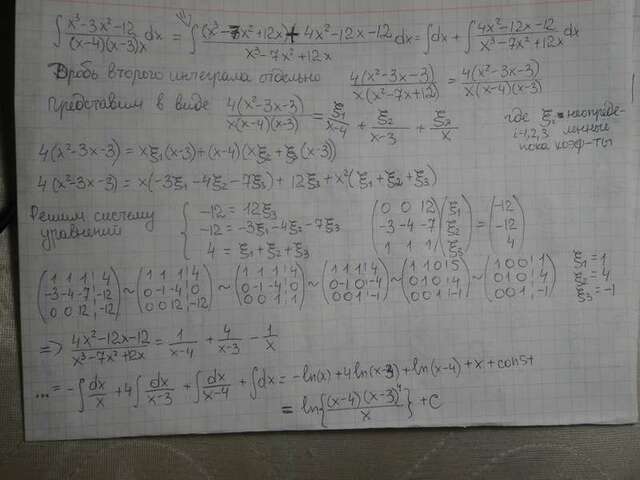 ∫ x³-3x²-12 / (x-4)(x-3)x dx = ∫ (x³-7x²+12x) + 4x²-12x-12 / x³-7x²+12x dx = ∫dx + ∫ 4x²-12x-12 / x³-7x²+12x dx
Дробь второго интеграла отдельно 4(x²-3x-3) / x(x²-7x+12) = 4(x²-3x-3) / x(x-4)(x-3)
представим в виде 4(x²-3x-3) / x(x-4)(x-3) = ξ₁/x-4 + ξ₂/x-3 + ξ₃/x где ξᵢ - неопреде-
i=1,2,3 ленные
пока коэф-ты
4(x²-3x-3) = xξ₁(x-3)+(x-4)(xξ₂+ξ₃(x-3))
4(x²-3x-3) = x(-3ξ₁-4ξ₂-7ξ₃)+12ξ₃+x²(ξ₁+ξ₂+ξ₃)
Решим систему уравнений { -12 = 12ξ₃
-12 = -3ξ₁-4ξ₂-7ξ₃
4 = ξ₁+ξ₂+ξ₃
(0 0 12; -3 -4 -7; 1 1 1) (ξ₁; ξ₂; ξ₃) = (-12; -12; 4)
(1 1 1 | 4; -3 -4 -7 | -12; 0 0 12 | -12) ~ (1 1 1 | 4; 0 -1 -4 | 0; 0 0 12 | -12) ~ (1 1 1 | 4; 0 -1 -4 | 0; 0 0 1 | 1) ~ (1 1 1 | 4; 0 -1 0 | -4; 0 0 1 | -1) ~ (1 1 0 | 5; 0 1 0 | 4; 0 0 1 | -1) ~ (1 0 0 | 1; 0 1 0 | 4; 0 0 1 | -1)
ξ₁ = 1
ξ₂ = 4
ξ₃ = -1
=> 4x²-12x-12 / x³-7x²+12x = 1/x-4 + 4/x-3 - 1/x
... = -∫dx/x + 4∫dx/x-3 + ∫dx/x-4 + ∫dx = -ln(x)+4ln(x-3)+ln(x-4)+x+const
= ln{(x-4)(x-3)⁴ / x} + C